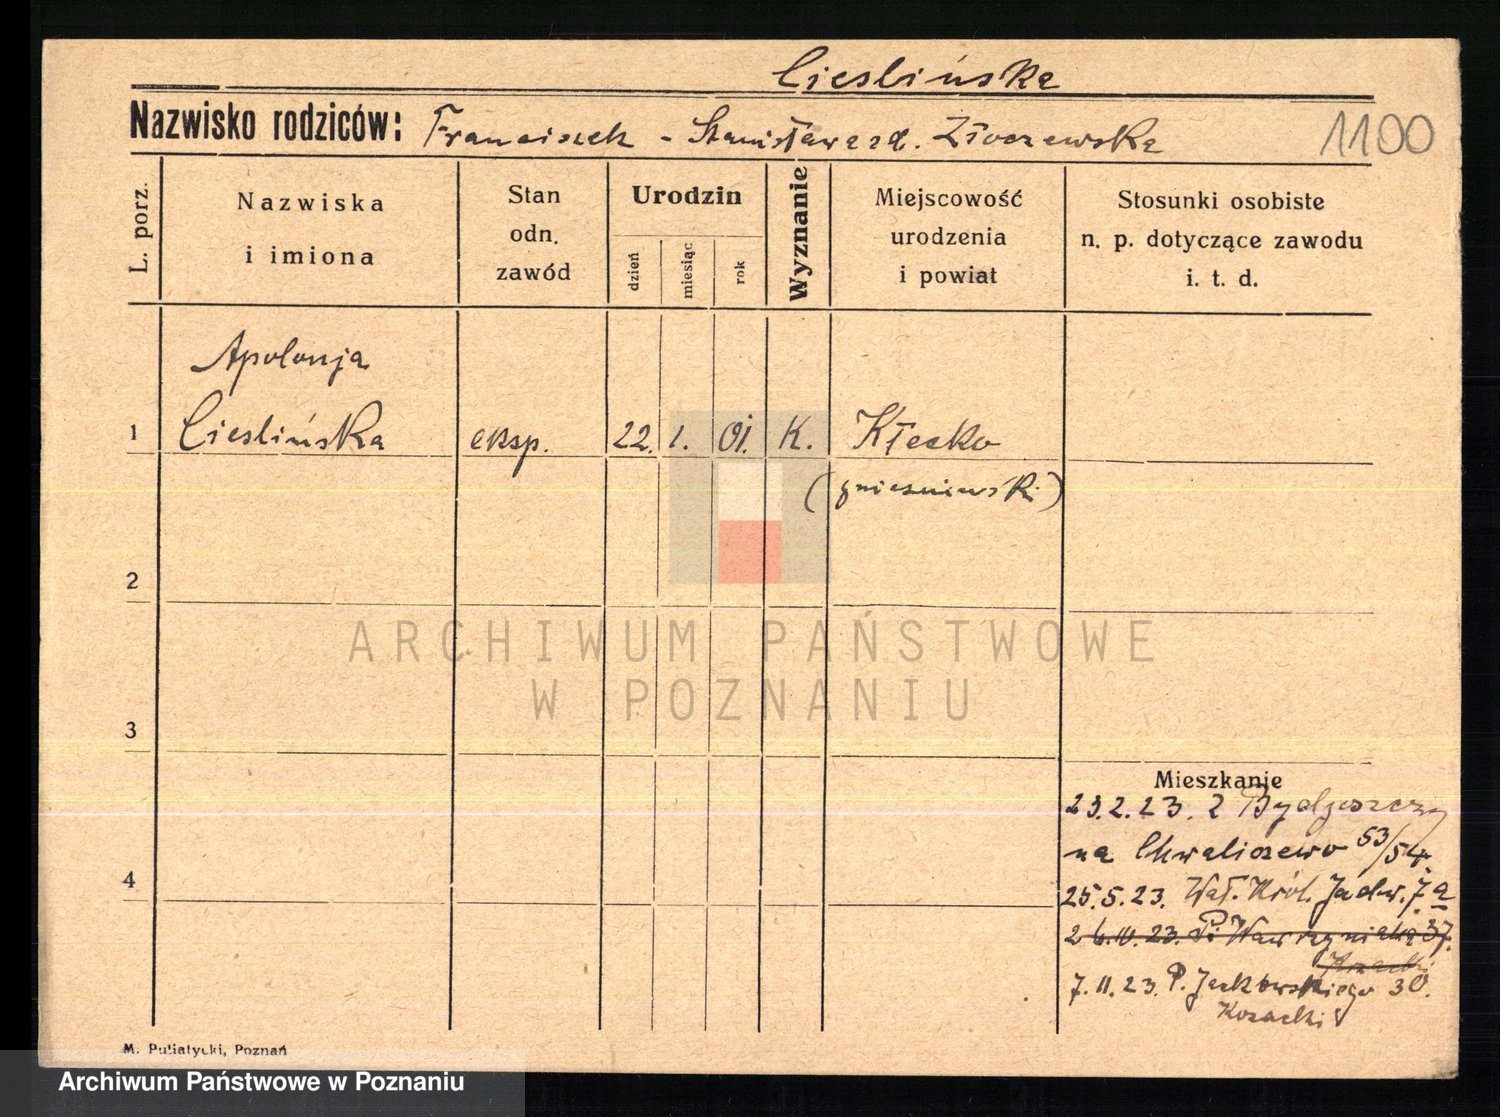 Cieslińska
Nazwisko rodziców: Franciszek - Stanisława zd. Złoczewska
1100
L. porz.
Nazwiska
i imiona
Stan
odn.
zawód
Urodzin
dzień
miesiąc
rok
Wyznanie
Miejscowość
urodzenia
i powiat
Stosunki osobiste
n. p. dotyczące zawodu
i. t. d.
Apolonja
1 Cieslińska eksp. 22. 1. 01. K. Kłecko
(gnieznienski)
2
3
4
ARCHIWUM PAŃSTWOWE
W POZNANIU
Mieszkanie
23.2.23. z Bydgoszczy
na Chwaliszewo 53/54.
25.5.23. Wał. Król. Jadw. 7a
26.10.23. Wawrzyniaka 37.
7.11.23. P. Jackowskiego 30.
Kozacki
M. Putiatycki, Poznań
Archiwum Państwowe w Poznaniu